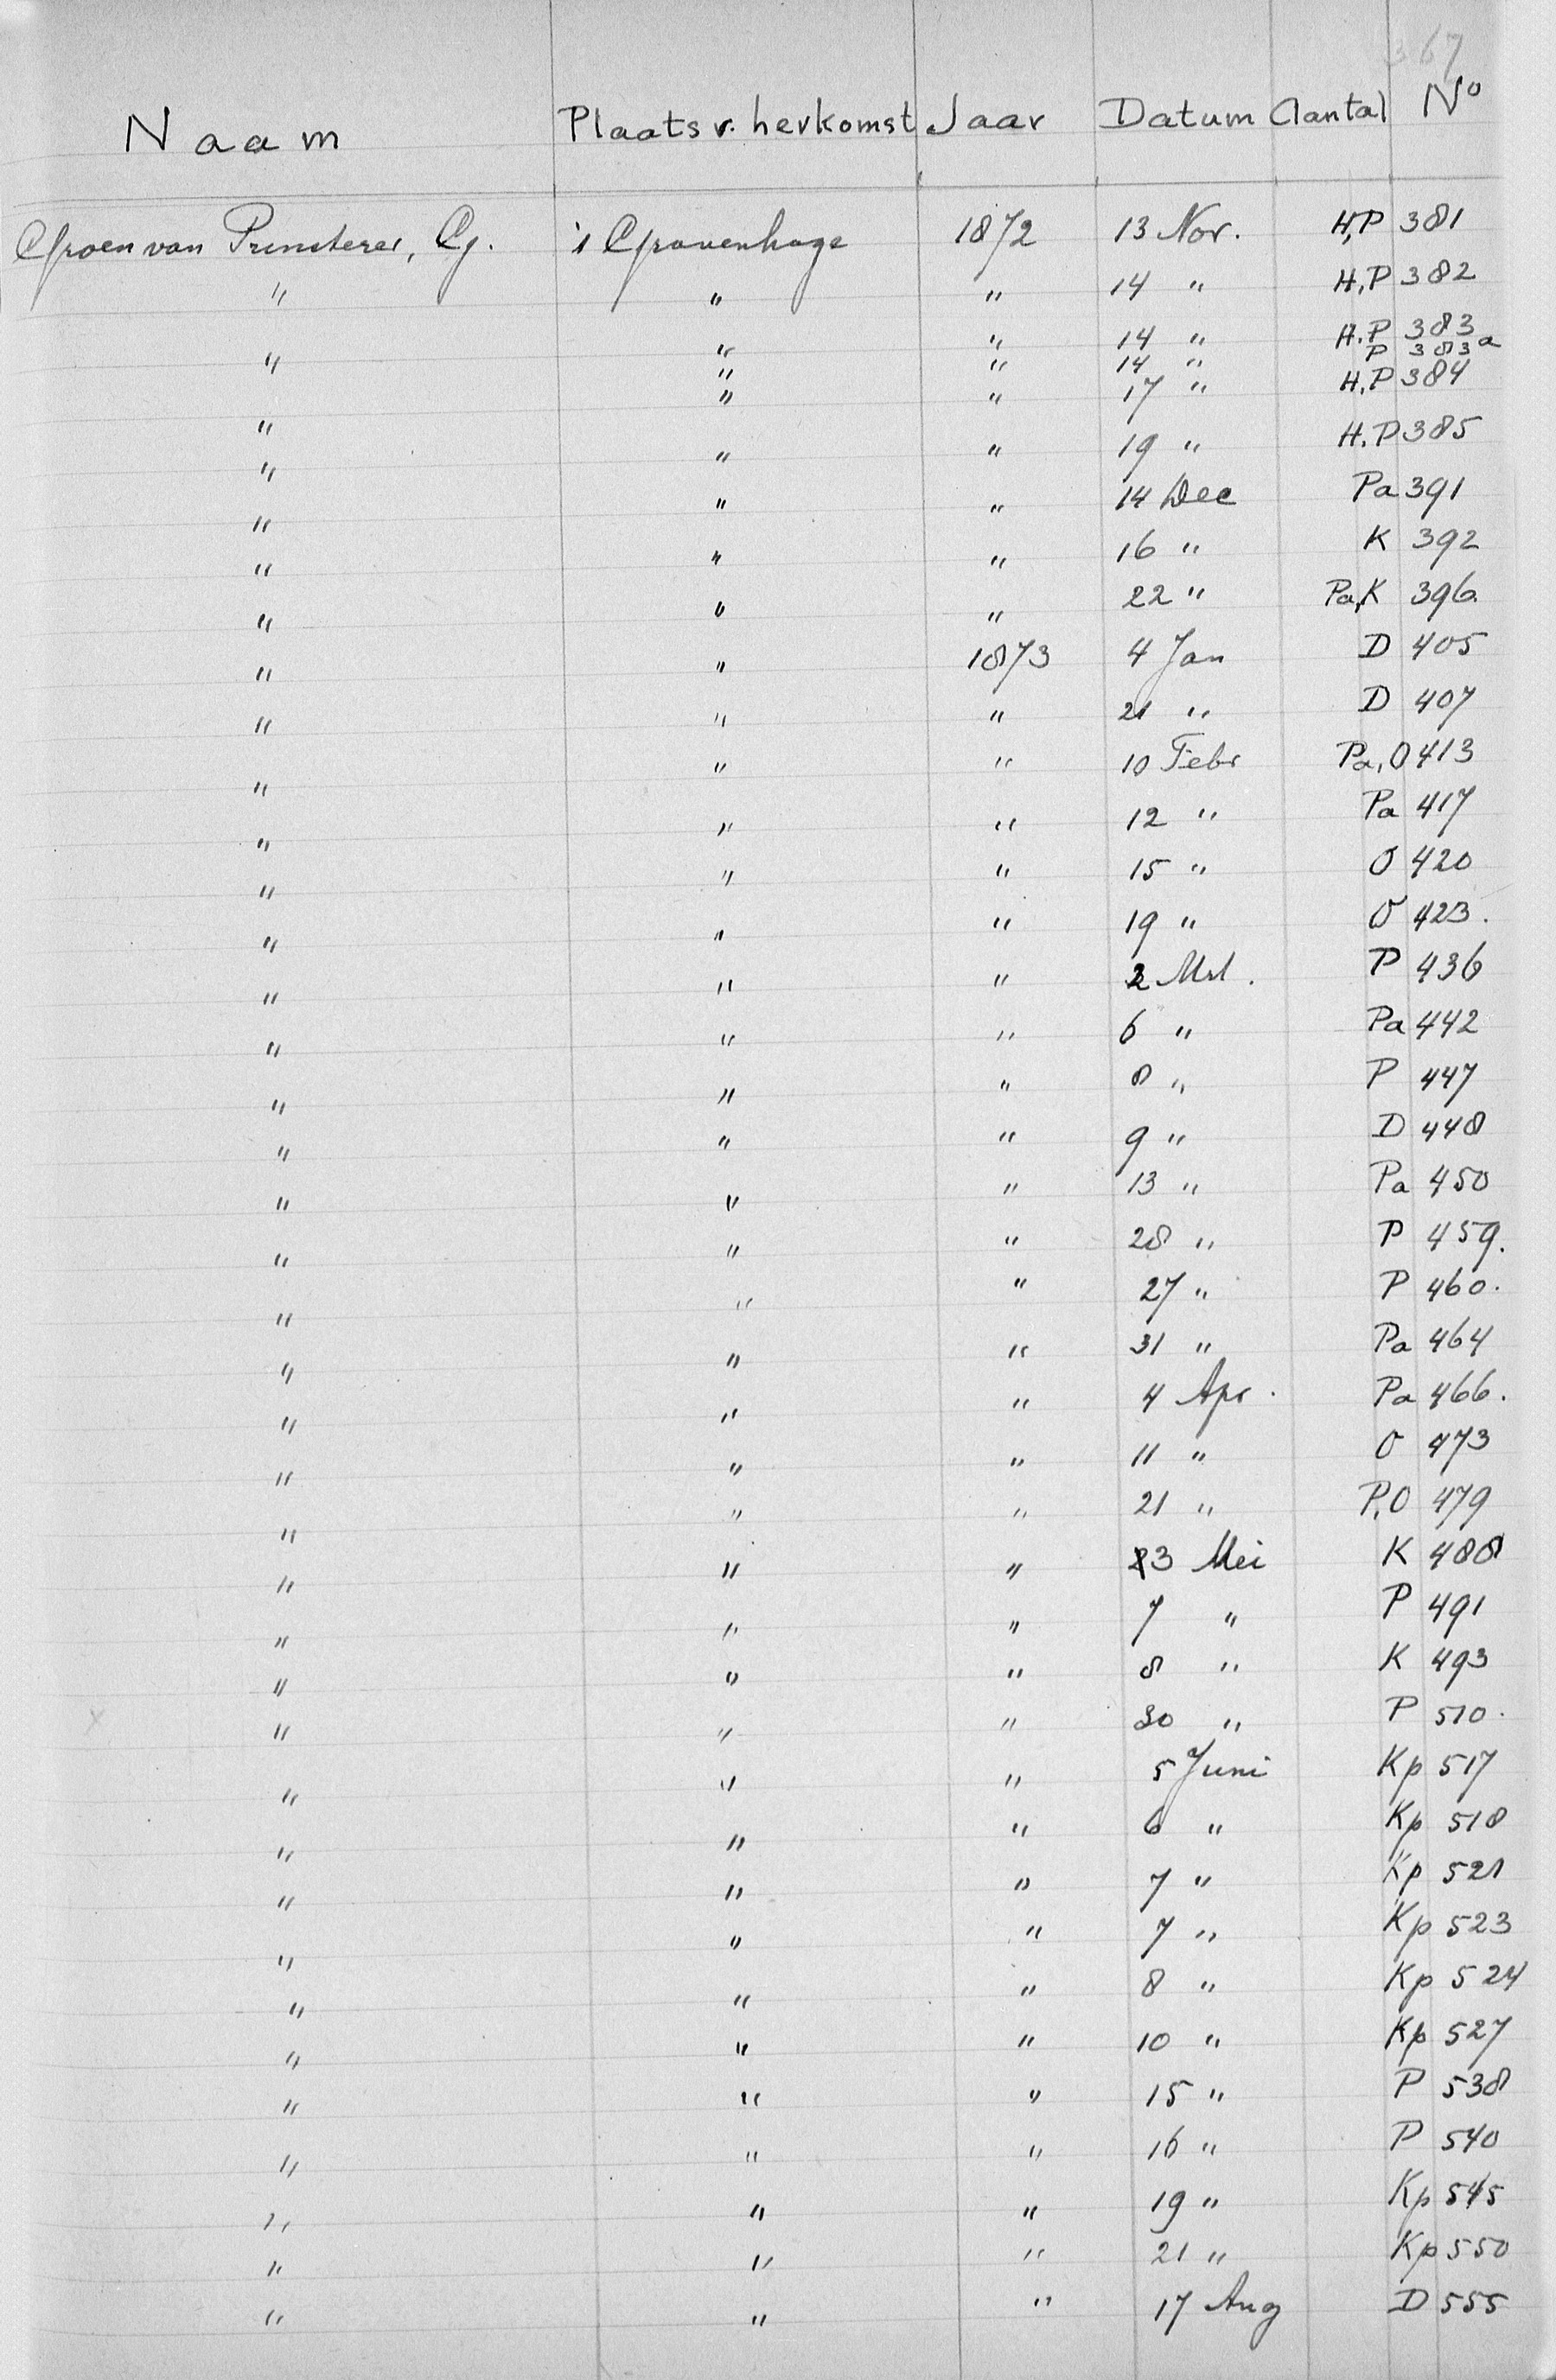 367
Naam Plaats v. herkomst Jaar Datum Aantal No
Groen van Prinsterer, G. 's Gravenhage 1872 13 Nov. H,P 381
" " " 14 " H,P 382
" " " 14 " H.P 383
" " 14 " P 383a
" " " 17 " H,P 384
" " " 19 " H.P 385
" " " 14 Dec Pa 391
" " " 16 " K 392
" " " 22 " Pa,K 396.
" " 1873 4 Jan D 405
" " " 21 " D 407
" " " 10 Febr Pa,O 413
" " " 12 " Pa 417
" " " 15 " O 420
" " " 19 " O 423.
" " " 2 Mrt. P 436
" " " 6 " Pa 442
" " " 8 " P 447
" " " 9 " D 448
" " " 13 " Pa 450
" " " 28 " P 459.
" " " 27 " P 460.
" " " 31 " Pa 464
" " " 4 Apr. Pa 466.
" " " 11 " O 473
" " " 21 " P,O 479
" " " 3 Mei K 488
" " " 7 " P 491
" " " 8 " K 493
x " " " 30 " P 510.
" " " 5 Juni Kp 517
" " " 6 " Kp 518
" " " 7 " Kp 521
" " " 7 " Kp 523
" " " 8 " Kp 524
" " " 10 " Kp 527
" " " 15 " P 538
" " " 16 " P 540
" " " 19 " Kp 545
" " " 21 " Kp 550
" " " 17 Aug D 555